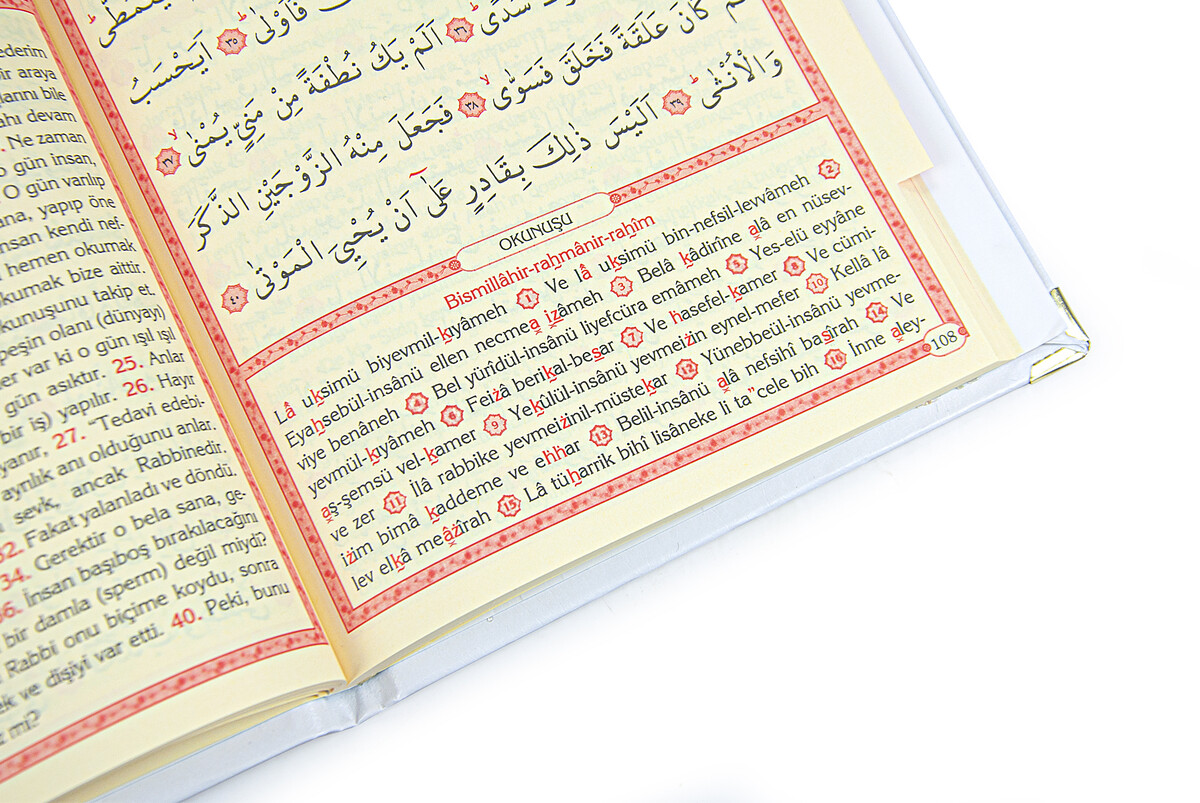 ederim
bir araya
larını bile
ahı devam
. Ne zaman
o gün insan,
O gün varılıp
ana, yapıp öne
insan kendi nef-
hemen okumak
okumak bize aittir.
okunuşunu takip et.
peşin olanı (dünyayı)
er var ki o gün ışıl ışıl
gün asıktır. 25. Anlar
bir iş) yapılır. 26. Hayır
yanır, 27. “Tedavi edebi-
ayrılık anı olduğunu anlar.
sevk, ancak Rabbinedir.
32. Fakat yalanladı ve döndü.
34. Gerektir o bela sana, ge-
36. İnsan başıboş bırakılacağını
bir damla (sperm) değil miydi?
Rabbi onu biçime koydu, sonra
ek ve dişiyi var etti. 40. Peki, bunu
mi?
فَاَوْلٰىۜ ﴿٣٥﴾ اَيَحْسَبُ
سُدًىۜ ﴿٣٦﴾ اَلَمْ يَكُ نُطْفَةً مِنْ مَنِيٍّ يُمْنٰىۙ ﴿٣٧﴾
كَانَ عَلَقَةً فَخَلَقَ فَسَوّٰىۙ ﴿٣٨﴾ فَجَعَلَ مِنْهُ الزَّوْجَيْنِ الذَّكَرَ
وَالْاُنْثٰىۜ ﴿٣٩﴾ اَلَيْسَ ذٰلِكَ بِقَادِرٍ عَلٰٓى اَنْ يُحْيِيَ الْمَوْتٰى ﴿٤٠﴾
OKUNUŞU
Bismillâhir-rahmânir-rahîm
Lâ uksimü biyevmil-kıyâmeh 1 Ve lâ uksimü bin-nefsil-levvâmeh 2
Eyahsebül-insânü ellen necmea izâmeh 3 Belâ kâdirîne alâ en nüsev-
viye benâneh 4 Bel yürîdül-insânü liyefcüra emâmeh 5 Yes-elü eyyâne
yevmül-kıyâmeh 6 Feiżâ berikal-besar 7 Ve hasefel-kamer 8 Ve cümi-
aş-şemsü vel-kamer 9 Yekûlül-insânü yevmeiżin eynel-mefer 10 Kellâ lâ
ve zer 11 İlâ rabbike yevmeiżinil-müstekar 12 Yünebbeül-insânü yevme-
iżim bimâ kaddeme ve ehhar 13 Belil-insânü alâ nefsihî basîrah 14 Ve
lev elkâ meâżîrah 15 Lâ tüharrik bihî lisâneke li ta”cele bih 16 İnne aley-
108